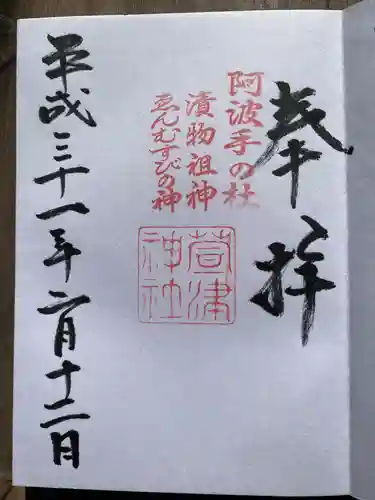 奉拝
阿波手の杜
漬物祖神
ゑんむすびの神
萱津神社
平成三十一年二月十二日